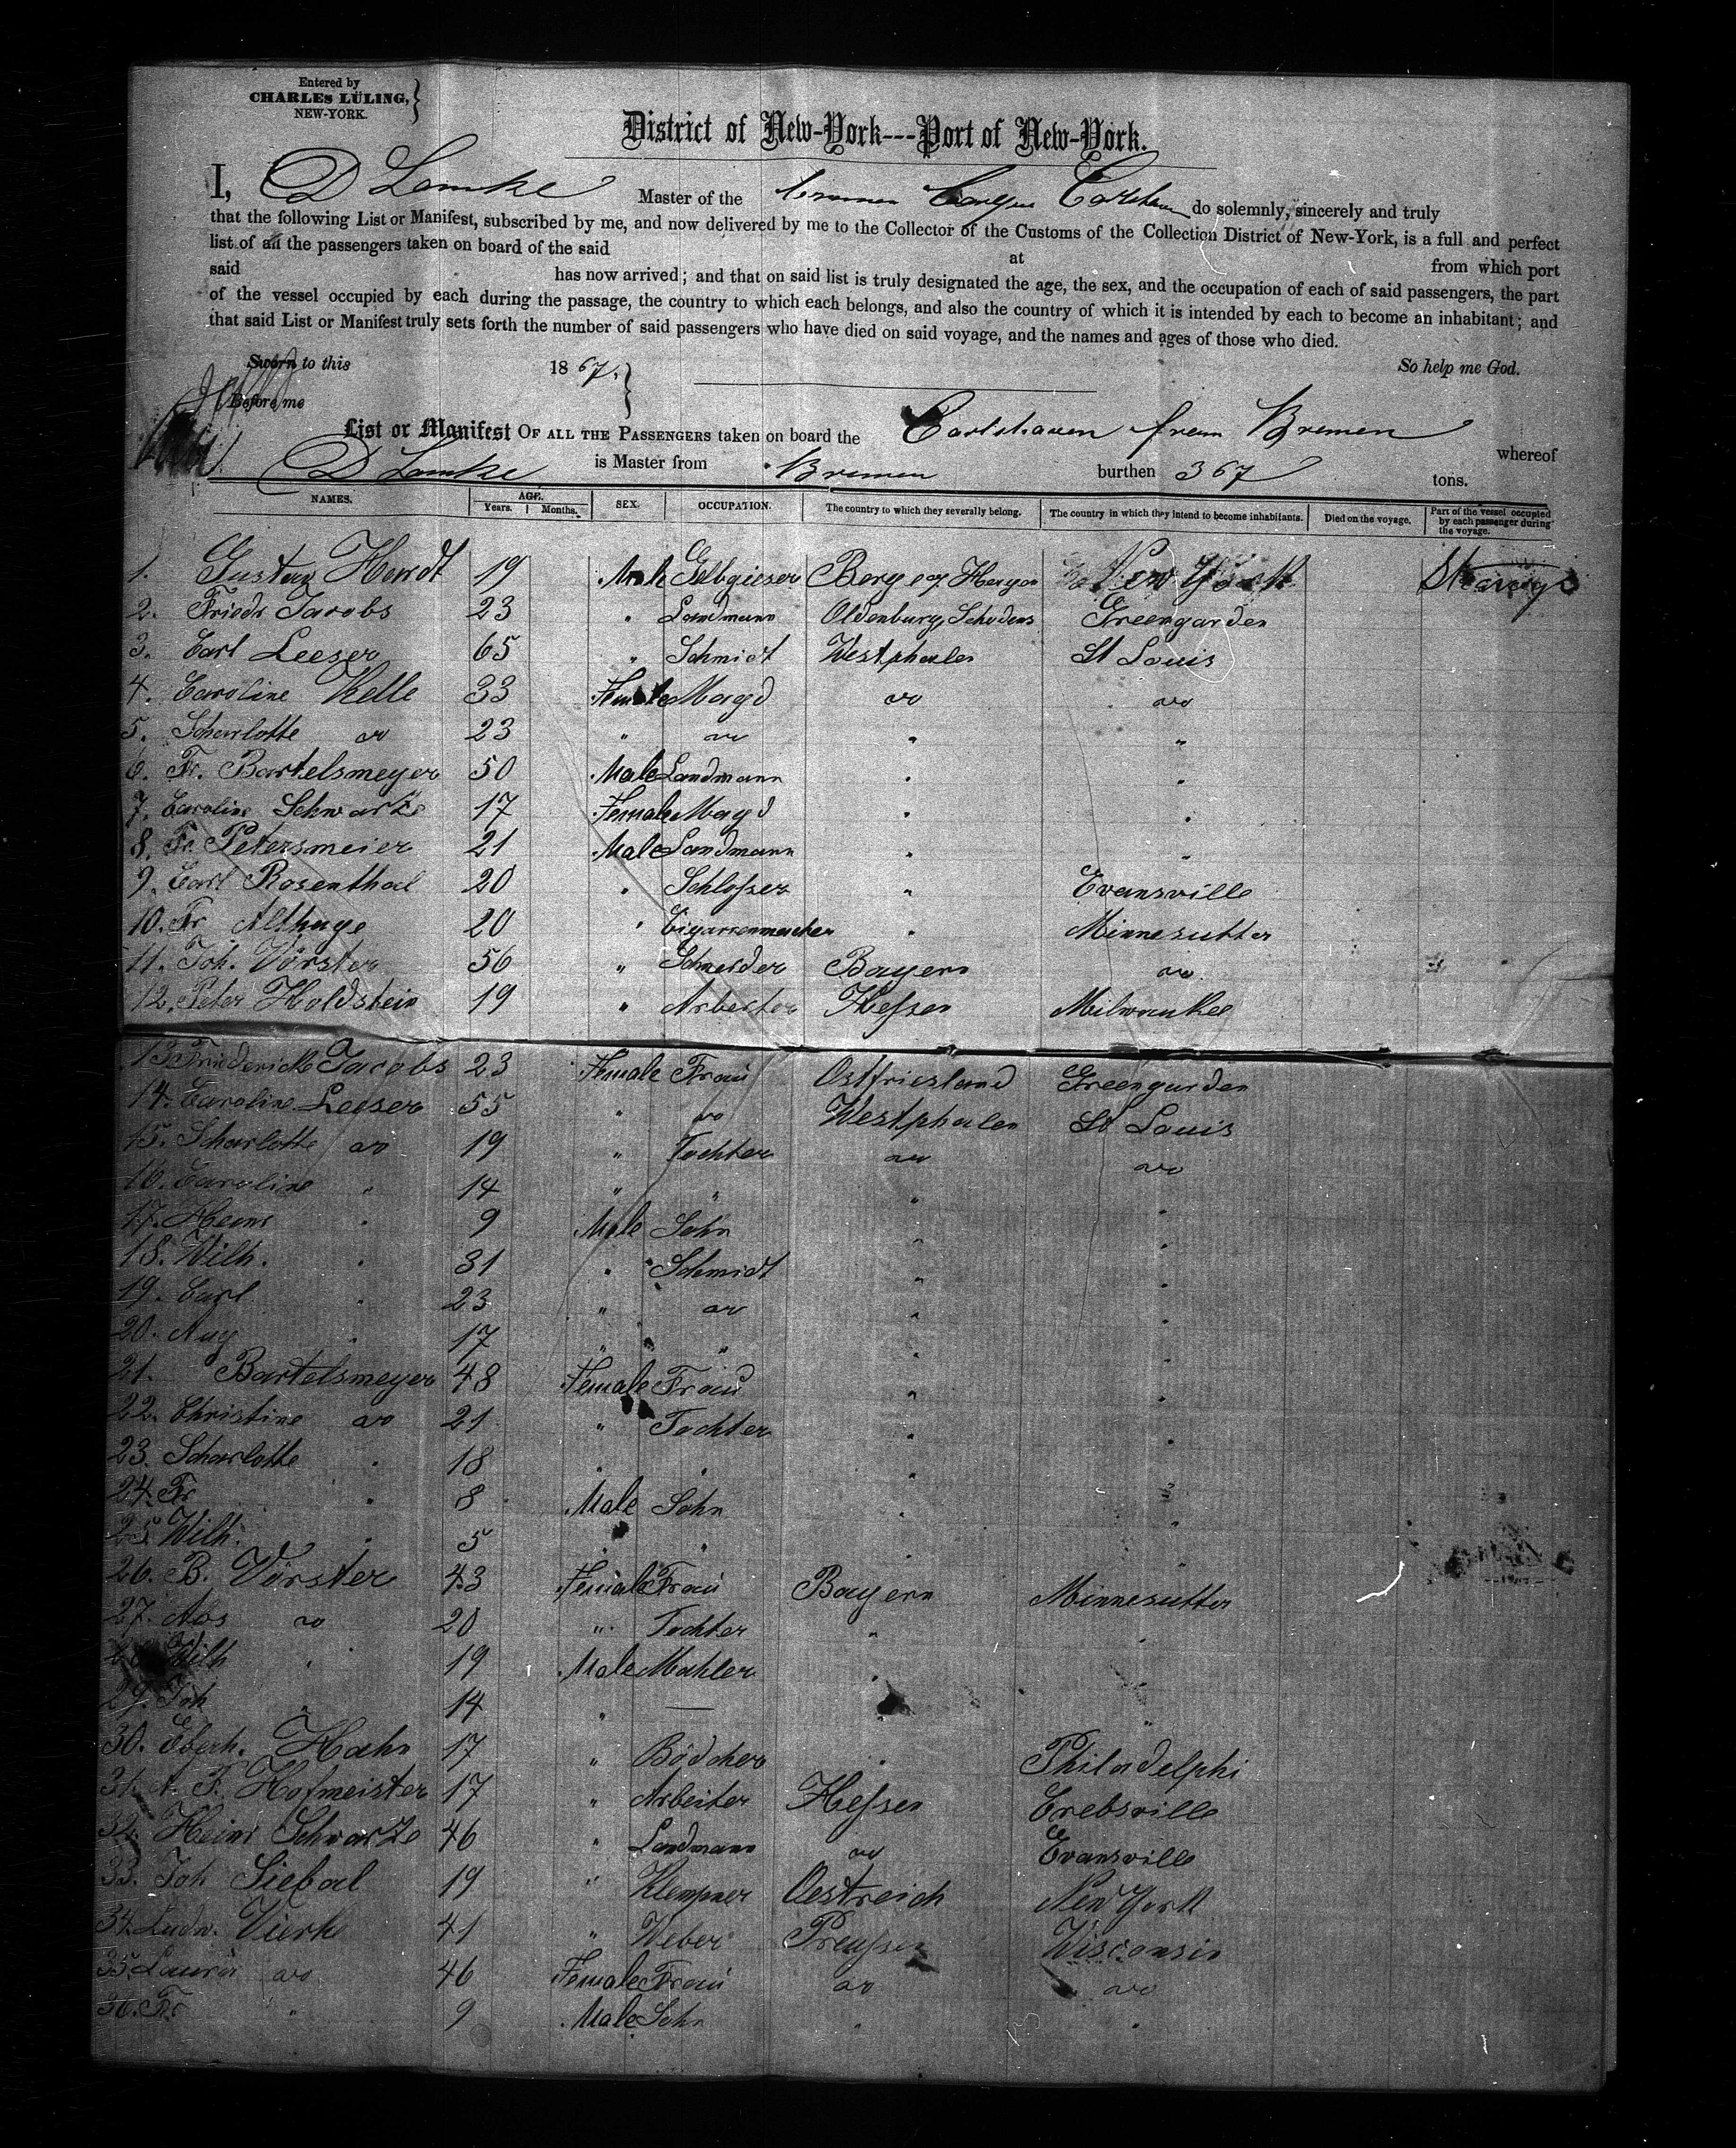 Entered by
CHARLES LÜLING,
NEW-YORK.
District of New-York---Port of New-York.
I, D Lamke Master of the Barque do solemnly, sincerely and truly
that the following List or Manifest, subscribed by me, and now delivered by me to the Collector of the Customs of the Collection District of New-York, is a full and perfect
list of all the passengers taken on board of the said at from which port
said has now arrived; and that on said list is truly designated the age, the sex, and the occupation of each of said passengers, the part
of the vessel occupied by each during the passage, the country to which each belongs, and also the country of which it is intended by each to become an inhabitant; and
that said List or Manifest truly sets forth the number of said passengers who have died on said voyage, and the names and ages of those who died.
Sworn to this 1867, So help me God.
Before me
List or Manifest OF ALL THE PASSENGERS taken on board the Carlshaven from Bremen whereof
D Lamke is Master from Bremen burthen 367 tons.
NAMES. AGE. Years. Months. SEX. OCCUPATION. The country to which they severally belong. The country in which they intend to become inhabitants. Died on the voyage. Part of the vessel occupied by each passenger during the voyage.
1. Gustav Hardt 19 Male Gelbgieser New York Steerage
2. Friedr Jacobs 23 " Landmann Oldenburg, Greengarden
3. Carl Leeser 65 " Schmidt Westphalen St Louis
4. Caroline Kelle 33 Female Magd do do
5. Scharlotte do 23 " do " "
6. Fr. Bartelsmeyer 50 Male Landmann " "
7. Caroline Schwartze 17 Female Magd " "
8. Fr. Petersmeier 21 Male Landmann " "
9. Carl Rosenthal 20 " Schlosser " Evansville
10. Fr Althage 20 " Cigarrenmacher " Minnesutter
11. Joh. Vörster 56 " Schneider Bayern do
12. Peter Holdstein 19 " Arbeiter Hessen Milwaukee
13 Friedericke Jacobs 23 Female Frau Ostfriesland Greengarden
14. Caroline Leeser 55 " do Westphalen St Louis
15. Scharlotte do 19 " Tochter do do
16. Caroline " 14 " " " "
17. Heinr " 9 Male Sohn " "
18. Wilh. " 31 " Schmidt " "
19. Carl " 23 " do " "
20. Aug " 17 " " " "
21. Bartelsmeyer 48 Female Frau " "
22. Christine do 21 " Tochter " "
23. Scharlotte " 18 " " " "
24. Fr " 8 Male Sohn " "
25 Wilh. " 5 " " " "
26. B. Vörster 43 Female Frau Bayern Minnesutter
27. do 20 " Tochter " "
28 Wilh " 19 Male Mahler " "
29. Joh " 14 " — " "
30. Eberh. Hahn 17 " Bödcher " Philadelphi
31. A. F. Hofmeister 17 " Arbeiter Hessen Crebsville
32. Heinr Schwartze 46 " Landmann do Evansville
33. Joh Siebal 19 " Klempner Oestreich New York
34. Ludw. Vierke 41 " Weber Preussen Wisconsin
35. Laura do 46 Female Frau do do
36. Fr " 9 Male Sohn " "